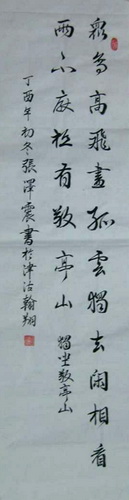 众鸟高飞盡孤雲獨去闲相看
两不厌祇有敬亭山 獨坐敬亭山
丁酉年初冬張澤震書於津沽翰翔